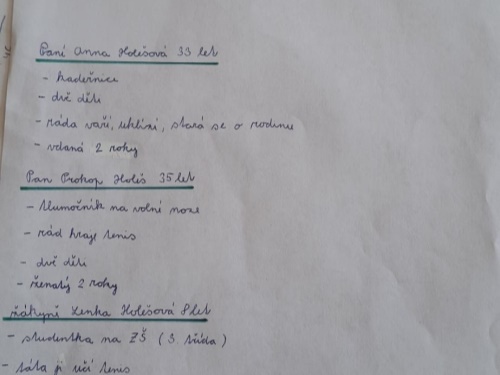 Paní Anna Holešová 33 let
- kadeřnice
- dvě děti
- ráda vaří, uklízí, stará se o rodinu
- vdaná 2 roky
Pan Prokop Holeš 35 let
- tlumočník na volní noze
- rád hraje tenis
- dvě děti
- ženatý 2 roky
žákyně Lenka Holešová 8 let
- studentka na ZŠ (3. třída)
- táta ji učí tenis